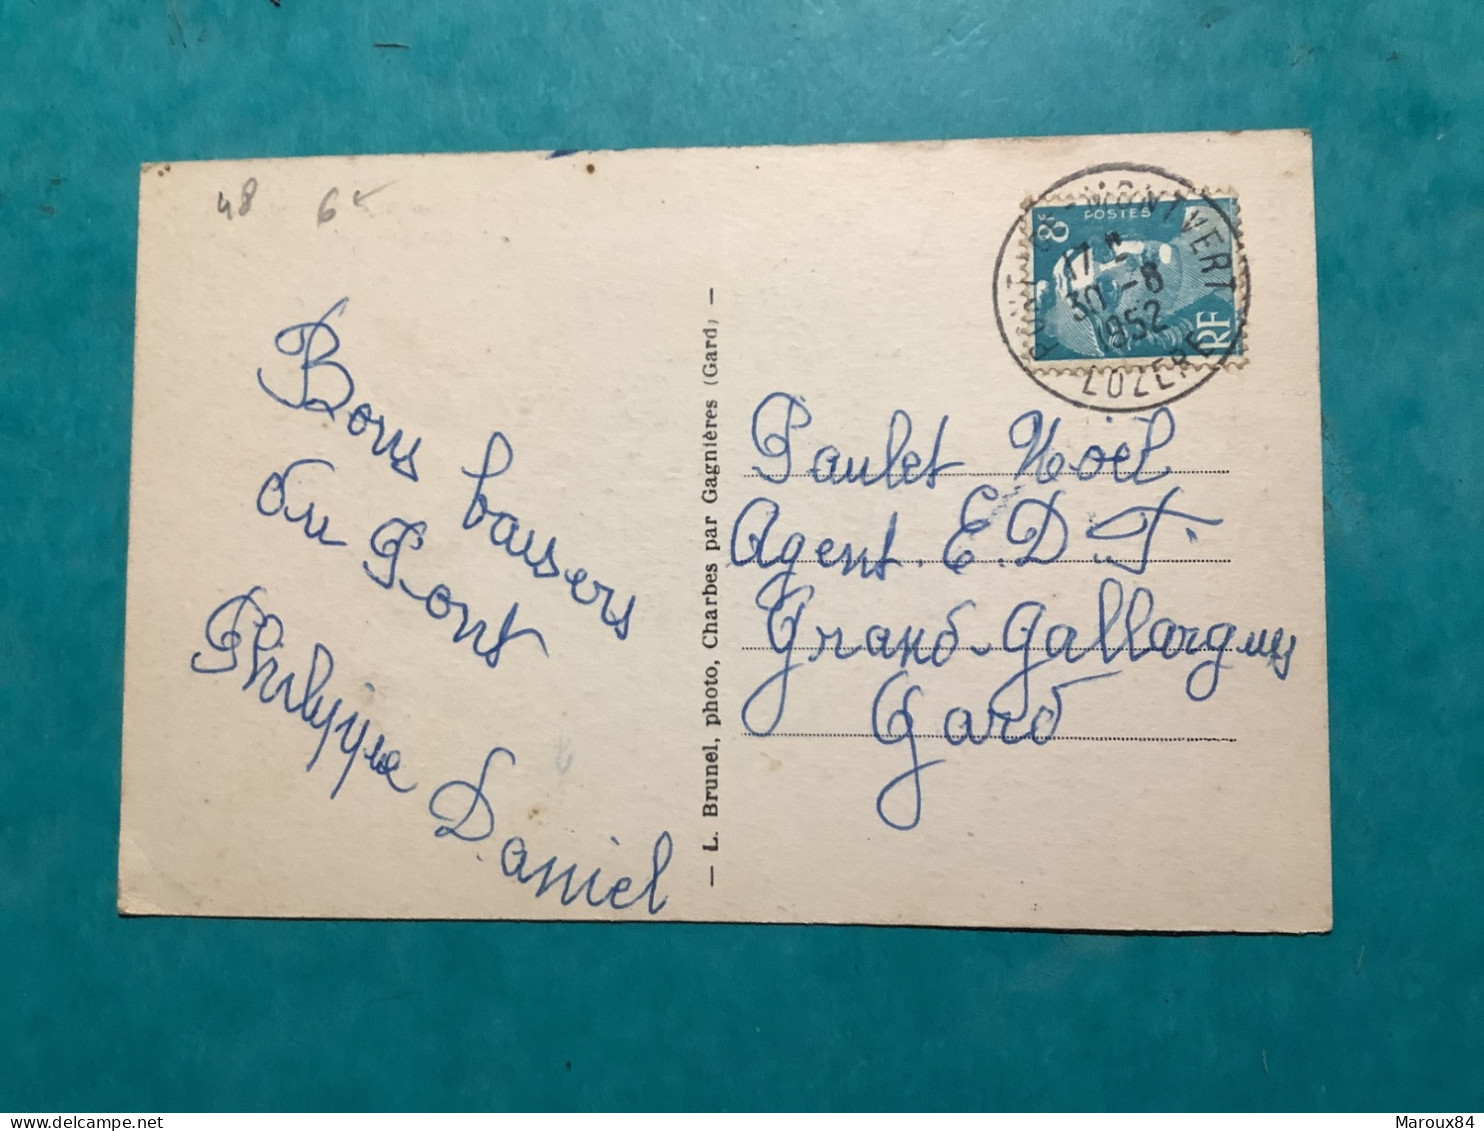 48 6
Bons baisers
du Pont
Philippe Daniel
— L. Brunel, photo, Charbes par Gagnières (Gard) —
8F POSTES
RF
PONT DE MONTVERT
17 H
30 -8
1952
LOZERE
Paulet Noël
Agent. E. D. F.
Grand-Gallargues
Gard
Maroux84